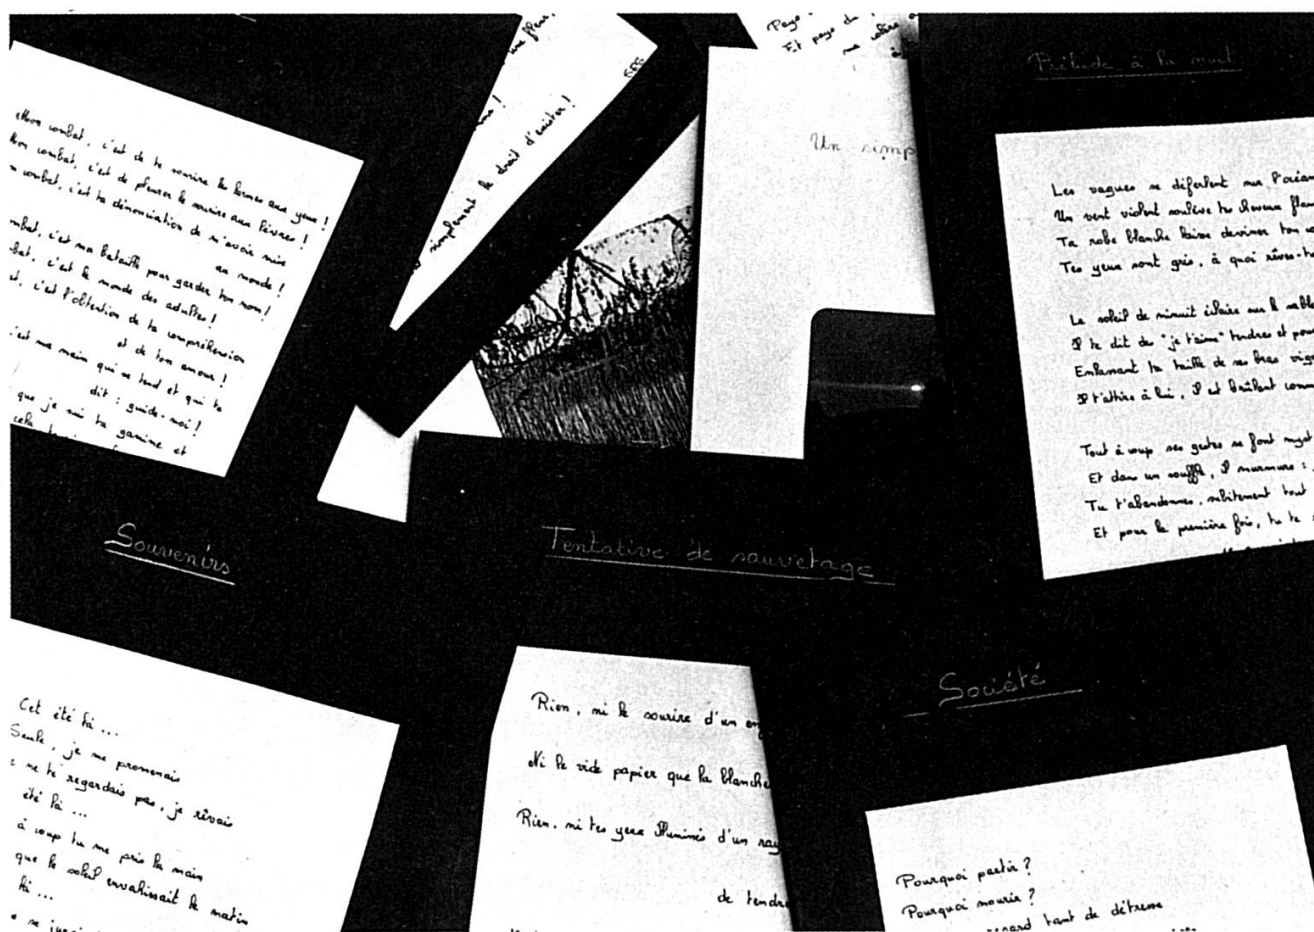 Mon combat, c'est de te sourire les larmes aux yeux !
Mon combat, c'est de pleurer le sourire aux lèvres !
combat, c'est ta dénonciation de m'avoir mise
au monde !
c'est ma bataille pour garder ton nom !
c'est le monde des adultes !
c'est l'obtention de ta compréhension
et de ton amour !
c'est ma main qui se tend et qui te
dit : guide-moi !
que je suis ta gamine et
cela
une fleur,
simplement le droit d'exister !
Pays
Et pays du
ma colère
Un simp
Prélude à la nuit
Les vagues se déferlent sur l'océan
Un vent violent soulève tes cheveux
Ta robe blanche laisse dessiner ton
Tes yeux sont gris, à quoi rêves-tu
Le soleil de minuit éclaire sur le sable
Il te dit des "je t'aime" tendres et
Enlassant ta taille de ses bras
Il t'attire à lui, il est brûlant
Tout à coup ses gestes se font
Et dans un souffle, il murmure :
Tu t'abandonnes, subitement tout
Et pour la première fois, tu te
Souvenirs
Cet été là ...
Seule, je me promenais
ne te regardais pas, je rêvais
été là ...
à coup tu me pris la main
que le soleil envahissait le matin
là ...
Tentative de sauvetage
Rien, ni le sourire d'un
Ni le vide papier que la
Rien, ni tes yeux illuminés d'un
de
Société
Pourquoi partir ?
Pourquoi mourir ?
tant de détresse